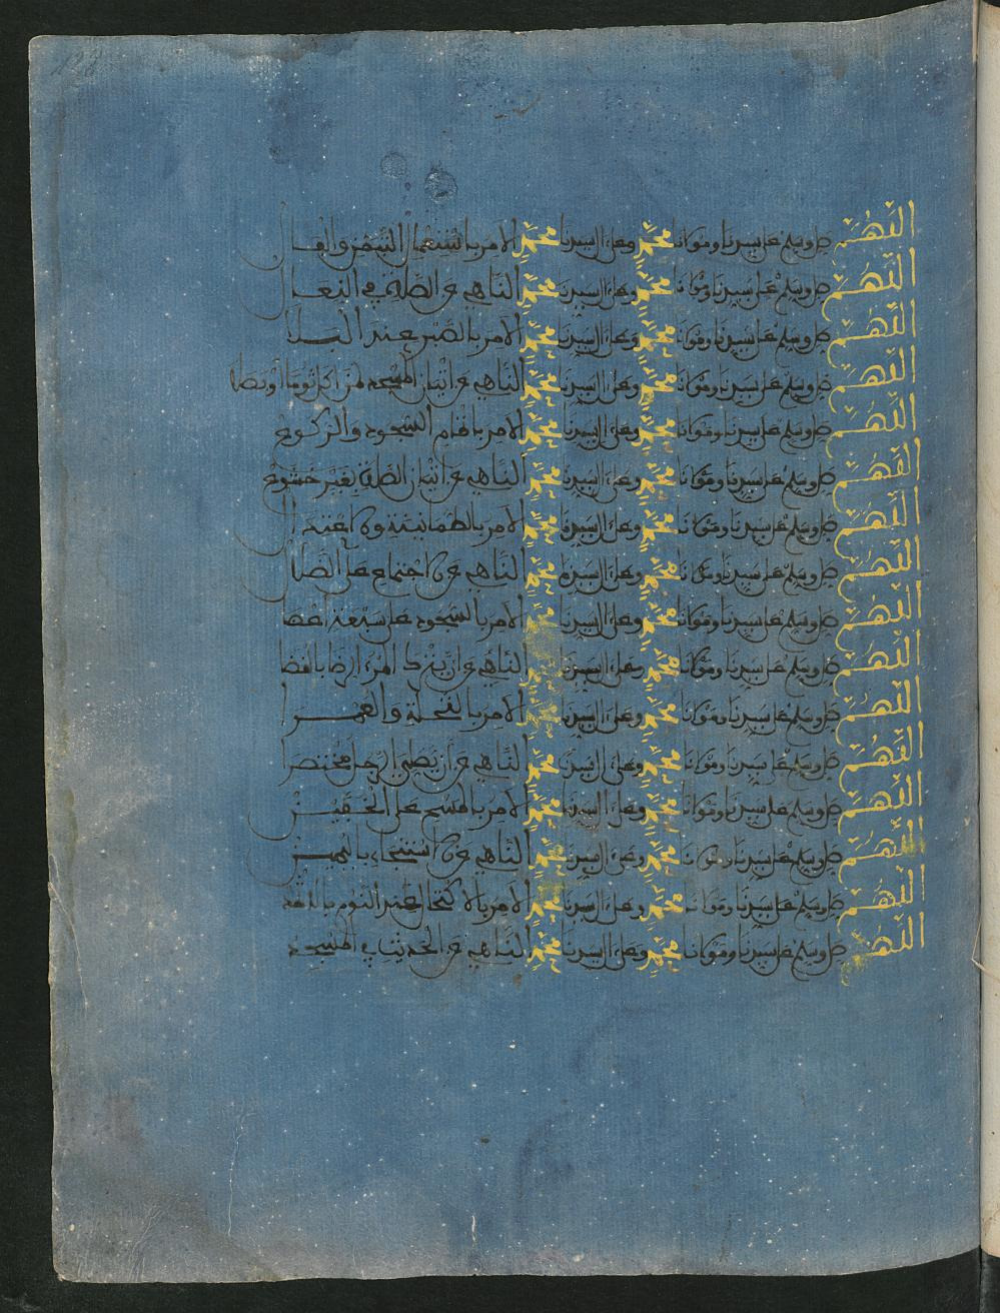 اللهم صل وسلم على سيدنا ومولانا محمد وعلى ءال سيدنا محمد الآمر باستعمال
اللهم صل وسلم على سيدنا ومولانا محمد وعلى ءال سيدنا محمد الناهي عن الصلاة في النعال
اللهم صل وسلم على سيدنا ومولانا محمد وعلى ءال سيدنا محمد الآمر بالصبر عند البلا
اللهم صل وسلم على سيدنا ومولانا محمد وعلى ءال سيدنا محمد الناهي عن اتيان المسجد لمن اكل ثوما او بصلا
اللهم صل وسلم على سيدنا ومولانا محمد وعلى ءال سيدنا محمد الآمر باتمام السجود والركوع
اللهم صل وسلم على سيدنا ومولانا محمد وعلى ءال سيدنا محمد الناهي عن اتيان الصلاة بغير خشوع
اللهم صل وسلم على سيدنا ومولانا محمد وعلى ءال سيدنا محمد الآمر بالطمانينة والاعتدال
اللهم صل وسلم على سيدنا ومولانا محمد وعلى ءال سيدنا محمد الناهي عن الاجتماع على
اللهم صل وسلم على سيدنا ومولانا محمد وعلى ءال سيدنا محمد الآمر بالسجود على سبعة اعضا
اللهم صل وسلم على سيدنا ومولانا محمد وعلى ءال سيدنا محمد الناهي عن
اللهم صل وسلم على سيدنا ومولانا محمد وعلى ءال سيدنا محمد الآمر
اللهم صل وسلم على سيدنا ومولانا محمد وعلى ءال سيدنا محمد الناهي عن ان يصلي الرجل مختصرا
اللهم صل وسلم على سيدنا ومولانا محمد وعلى ءال سيدنا محمد الآمر بالمسح على الخفين
اللهم صل وسلم على سيدنا ومولانا محمد وعلى ءال سيدنا محمد الناهي عن الاستنجاء باليمين
اللهم صل وسلم على سيدنا ومولانا محمد وعلى ءال سيدنا محمد الآمر بالاكتحال عند النوم بالاثمد
اللهم صل وسلم على سيدنا ومولانا محمد وعلى ءال سيدنا محمد الناهي عن الحديث في المسجد